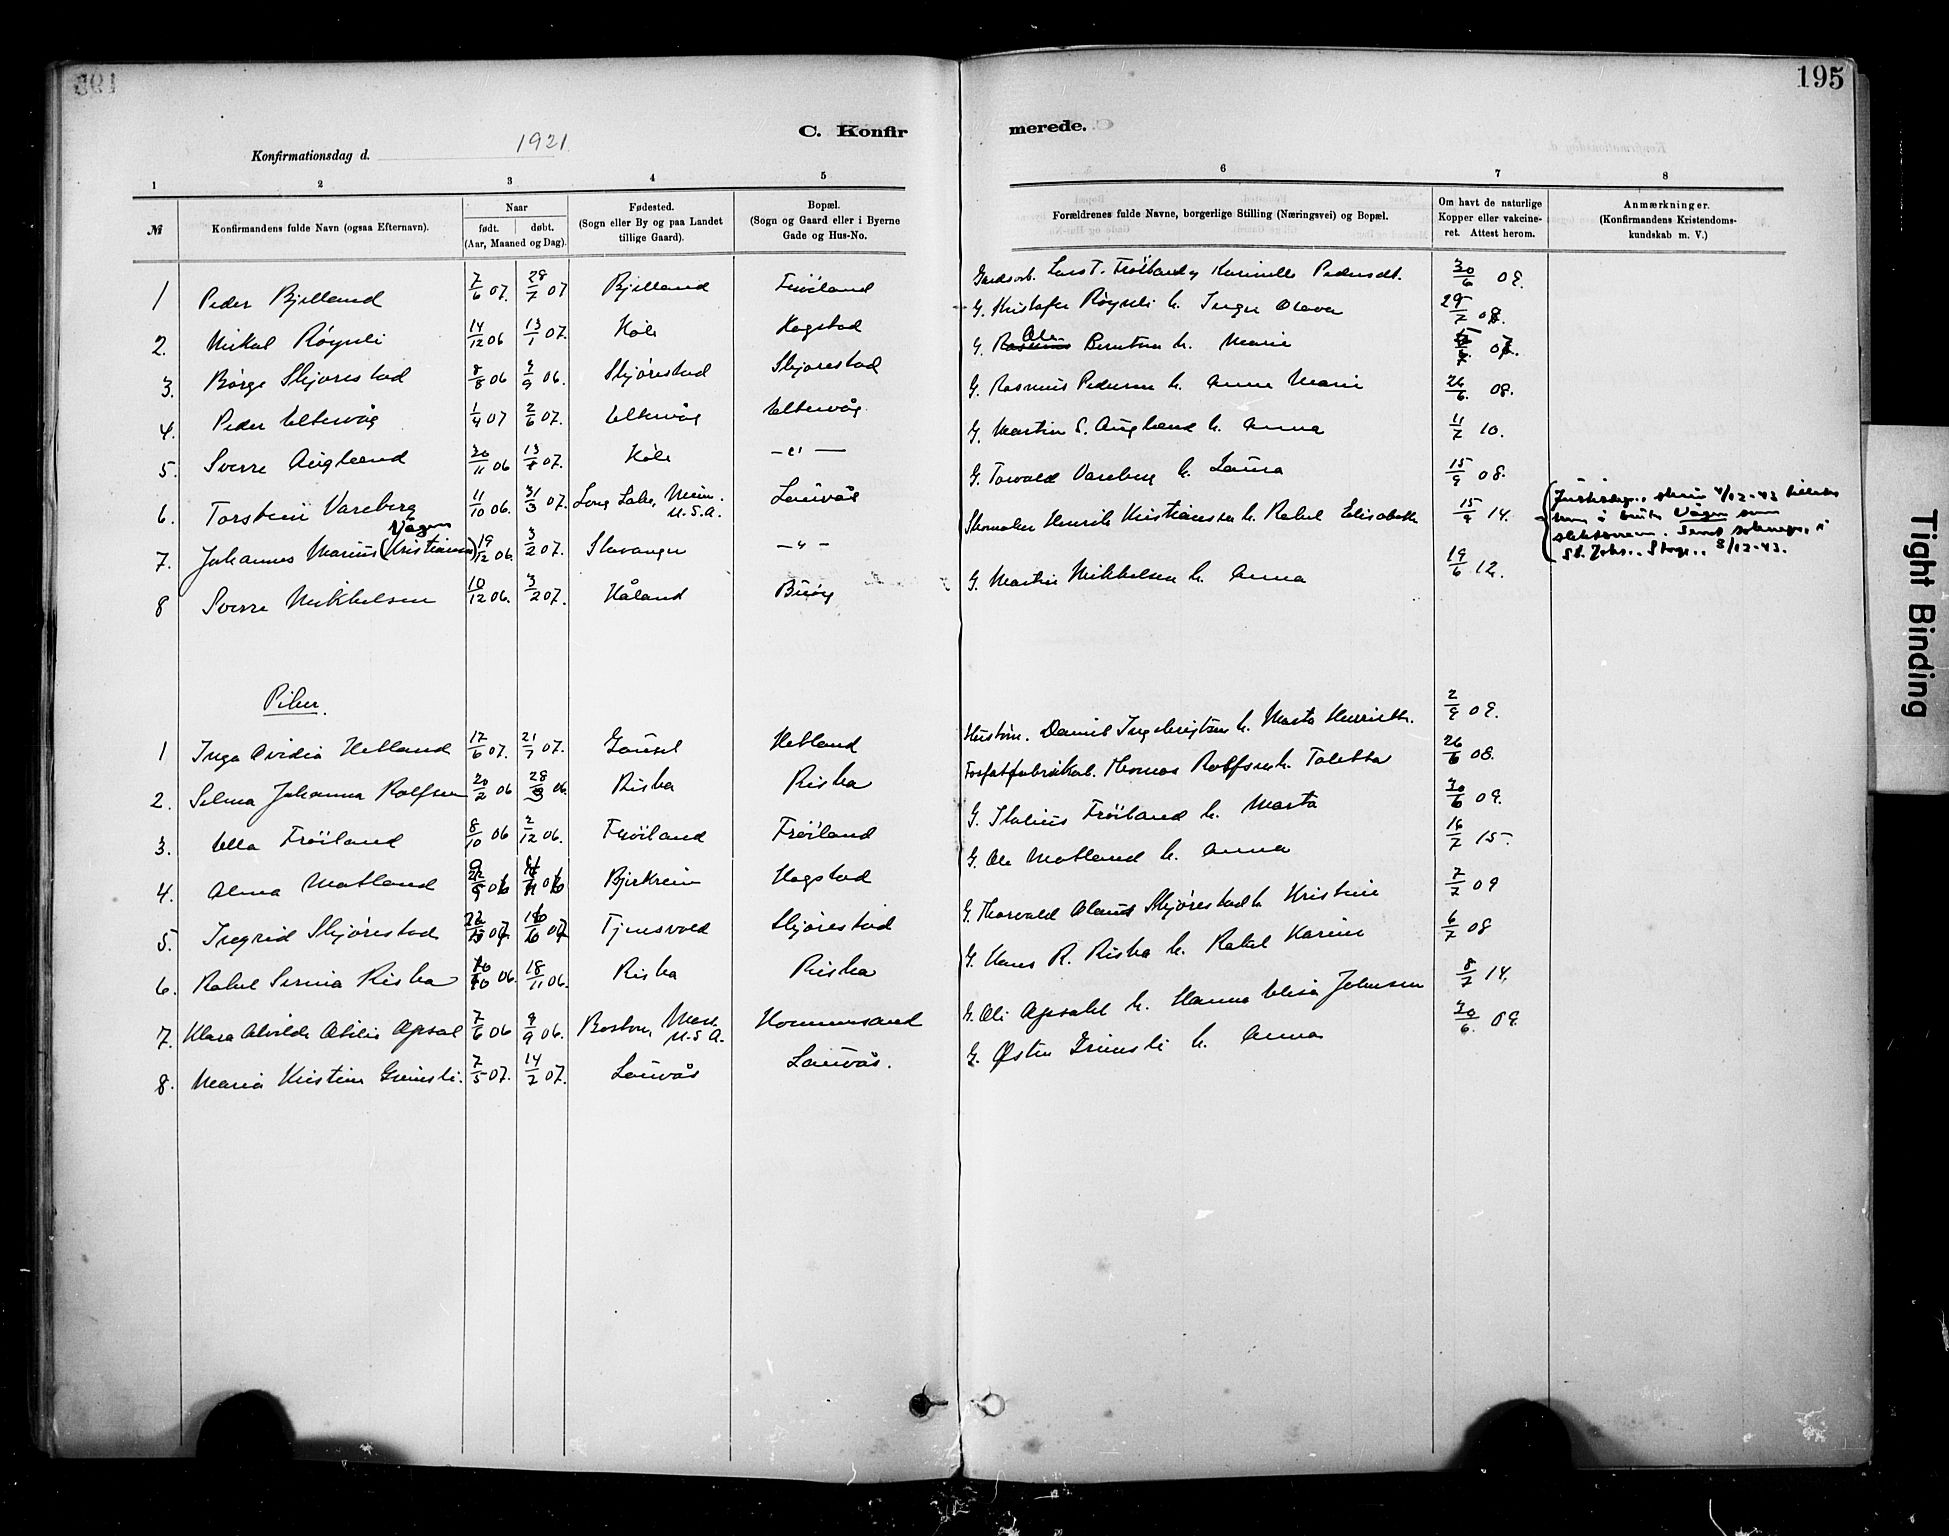 195
C. Konfir merede.
Konfirmationsdag d. 1921
1 2 3 4 5 6 7 8
№ Konfirmandens fulde Navn (ogsaa Efternavn). Naar født. døbt. (Aar, Maaned og Dag). Fødested. (Sogn eller By og paa Landet tillige Gaard). Bopæl. (Sogn og Gaard eller i Byerne Gade og Hus-No. Forældrenes fulde Navne, borgerlige Stilling (Næringsvei) og Bopæl. Om havt de naturlige Kopper eller vakcineret. Attest herom. Anmærkninger. (Konfirmandens Kristendomskundskab m. V.)
1 Peder Bjelland 7/6 07. 28/7 07 Bjelland Fröiland Gardsarb. Lars T. Fröiland Pedersdt. 30/6 09.
2. Mikal Røynli 14/12 06 13/1 07. Høle Hogstad G. Kristofer Røynli h. Inger Olava 29/7 08.
3. Børge Skjørestad 8/8 06 2/9 06. Skjørestad Skjørestad G. Rasmus Ole Berntsen h. Marie
4. Peder Eltervåg 1/4 07 2/6 07. Eltervåg Eltervåg. G. Rasmus Pedersen h. Anne Marie 26/6. 08.
5. Sverre Auglænd 30/11 06 13/1 07. Høle —"— G. Martin S. Auglænd h. Anna 11/7 10.
6. Torstein Vareberg 11/10 06. 31/3 07. Long Lake, Minn. U.S.A. Lauvås G. Torvald Vareberg h. Laura 15/9 08.
7. Johannes Marius (Kristiansen) Vågen 19/12 06. 3/2 07. Stavanger —"— Skomaker Henrik Kristiansen h. Rakel Elisabeth 15/9 14. 4/12-43 Vågen som 8/12-43.
8 Sverre Mikkelsen 10/12 06. 3/2 07. Håland Buøy G. Martin Mikkelsen h. Anna 19/6 12.
Piker.
1 Inga Ovidia Hetland 17/6 07. 21/7 07. Gausel Hetland Daniel Ingebrigtsen h. Marta Henriette. 2/9 09.
2. Selma Johanna Rolfsen 20/2 06 28/3 06. Riska Riska Fosfatfabrikarb. Thomas Rolfsen h. Taletta 26/6 08.
3. Ella Fröiland 8/10 06 2/12 06. Fröiland Fröiland G. Fröiland h. Marta 30/6 09.
4. Alma Motland Bjerkreim Hogstad G. Ole Motland h. Anna 16/7 15.
5. Ingrid Skjørestad Tjensvold Skjørestad G. Thorvald Olaus Skjørestad h. Kristine 7/7 09
6. Rakel Serina Riska 10/10 06. 18/11 06. Riska Riska G. Hans R. Riska h. Rakel Karine 6/7 08
7. Klara Alvilde Otilie Opsal 7/6 06 9/9 06. Boston, Mass. U.S.A. Hommersand G. Ole Opsahl h. Hanna Elisa Johnsen 8/7 14.
8. Maria Kristine Grimsli. 7/5 07. 14/7 07. Lauvås Lauvås. G. Østen Grimsli h. Anna 30/6. 09.
Tight Binding